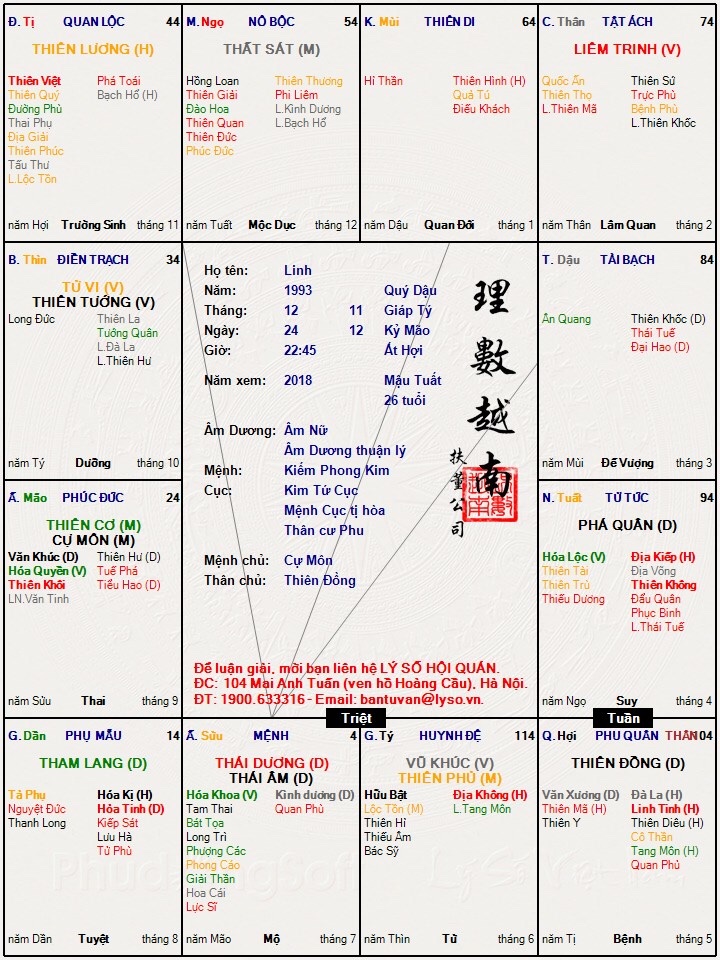 Đ. Tị QUAN LỘC 44
THIÊN LƯƠNG (H)
Thiên Việt Phá Toái
Thiên Quý Bạch Hổ (H)
Đường Phù
Thai Phụ
Địa Giải
Thiên Phúc
Tấu Thư
L.Lộc Tồn
năm Hợi Trường Sinh tháng 11
M. Ngọ NÔ BỘC 54
THẤT SÁT (M)
Hồng Loan Thiên Thương
Thiên Giải Phi Liêm
Đào Hoa L.Kình Dương
Thiên Quan L.Bạch Hổ
Thiên Đức
Phúc Đức
năm Tuất Mộc Dục tháng 12
K. Mùi THIÊN DI 64
Hỉ Thần Thiên Hình (H)
Quả Tú
Điếu Khách
năm Dậu Quan Đới tháng 1
C. Thân TẬT ÁCH 74
LIÊM TRINH (V)
Quốc Ấn Thiên Sứ
Thiên Thọ Trực Phù
L.Thiên Mã Bệnh Phù
L.Thiên Khốc
năm Thân Lâm Quan tháng 2
B. Thìn ĐIỀN TRẠCH 34
TỬ VI (V)
THIÊN TƯỚNG (V)
Long Đức Thiên La
Tướng Quân
L.Đà La
L.Thiên Hư
năm Tý Dưỡng tháng 10
Họ tên: Linh
Năm: 1993 Quý Dậu
Tháng: 12 11 Giáp Tý
Ngày: 24 12 Kỷ Mão
Giờ: 22:45 Ất Hợi
Năm xem: 2018 Mậu Tuất
26 tuổi
Âm Dương: Âm Nữ
Âm Dương thuận lý
Mệnh: Kiếm Phong Kim
Cục: Kim Tứ Cục
Mệnh Cục tị hòa
Thân cư Phu
Mệnh chủ: Cự Môn
Thân chủ: Thiên Đồng
理數越南
扶董公司
Để luận giải, mời bạn liên hệ LÝ SỐ HỘI QUÁN.
ĐC: 104 Mai Anh Tuấn (ven hồ Hoàng Cầu), Hà Nội.
ĐT: 1900.633316 - Email: bantuvan@lyso.vn.
T. Dậu TÀI BẠCH 84
Ân Quang Thiên Khốc (D)
Thái Tuế
Đại Hao (D)
năm Mùi Đế Vượng tháng 3
Ấ. Mão PHÚC ĐỨC 24
THIÊN CƠ (M)
CỰ MÔN (M)
Văn Khúc (D) Thiên Hư (D)
Hóa Quyền (V) Tuế Phá
Thiên Khôi Tiểu Hao (D)
LN.Văn Tinh
năm Sửu Thai tháng 9
N. Tuất TỬ TỨC 94
PHÁ QUÂN (D)
Hóa Lộc (V) Địa Kiếp (H)
Thiên Tài Địa Võng
Thiên Trù Thiên Không
Thiếu Dương Đẩu Quân
Phục Binh
L.Thái Tuế
năm Ngọ Suy tháng 4
Triệt
Tuần
G. Dần PHỤ MẪU 14
THAM LANG (D)
Tả Phụ Hóa Kị (H)
Nguyệt Đức Hỏa Tinh (D)
Thanh Long Kiếp Sát
Lưu Hà
Tử Phù
năm Dần Tuyệt tháng 8
Ấ. Sửu MỆNH 4
THÁI DƯƠNG (D)
THÁI ÂM (D)
Hóa Khoa (V) Kình dương (D)
Tam Thai Quan Phù
Bát Tọa
Long Trì
Phượng Các
Phong Cáo
Giải Thần
Hoa Cái
Lực Sĩ
năm Mão Mộ tháng 7
G. Tý HUYNH ĐỆ 114
VŨ KHÚC (V)
THIÊN PHỦ (M)
Hữu Bật Địa Không (H)
Lộc Tồn (M) L.Tang Môn
Thiên Hỉ
Thiếu Âm
Bác Sỹ
năm Thìn Tử tháng 6
Q. Hợi PHU QUÂN THÂN 104
THIÊN ĐỒNG (D)
Văn Xương (D) Đà La (H)
Thiên Mã (H) Linh Tinh (H)
Thiên Y Thiên Diêu (H)
Cô Thần
Tang Môn (H)
Quan Phủ
năm Tị Bệnh tháng 5